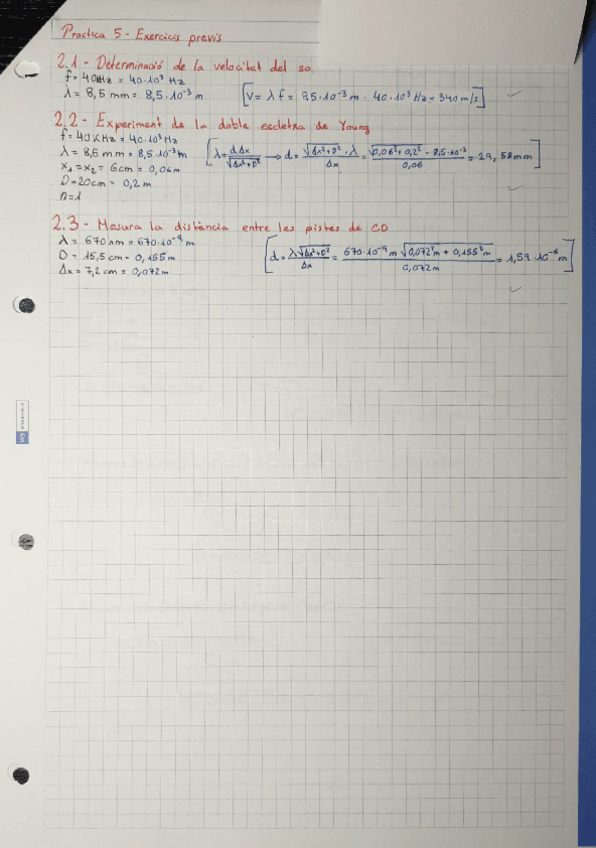 Practica 5 - Exercicis previs
2.1 - Determinació de la velocitat del so.
f = 40kHz = 40·10³ Hz
λ = 8,5 mm = 8,5·10⁻³ m [V = λ f = 8,5·10⁻³ m · 40·10³ Hz = 340 m/s]
2.2 - Experiment de la doble escletxa de Young
f = 40 KHz = 40·10³ Hz
λ = 8,5 mm = 8,5·10⁻³ m [λ = d Δx / √(Δx²+D²) → d = √(Δx²+D²) · λ / Δx = √(0,06²+0,2²) · 8,5·10⁻³ / 0,06 = 29,58mm]
x₁ = x₂ = 6cm = 0,06m
D = 20cm = 0,2 m
n = 1
2.3 - Mesura la distància entre les pistes de CD
λ = 670 nm = 670·10⁻⁹ m
D = 15,5 cm = 0,155 m [d = λ√(Δx²+D²) / Δx = 670·10⁻⁹ m √(0,072² m + 0,155² m) / 0,072 m = 1,59·10⁻⁶ m]
Δx = 7,2 cm = 0,072m